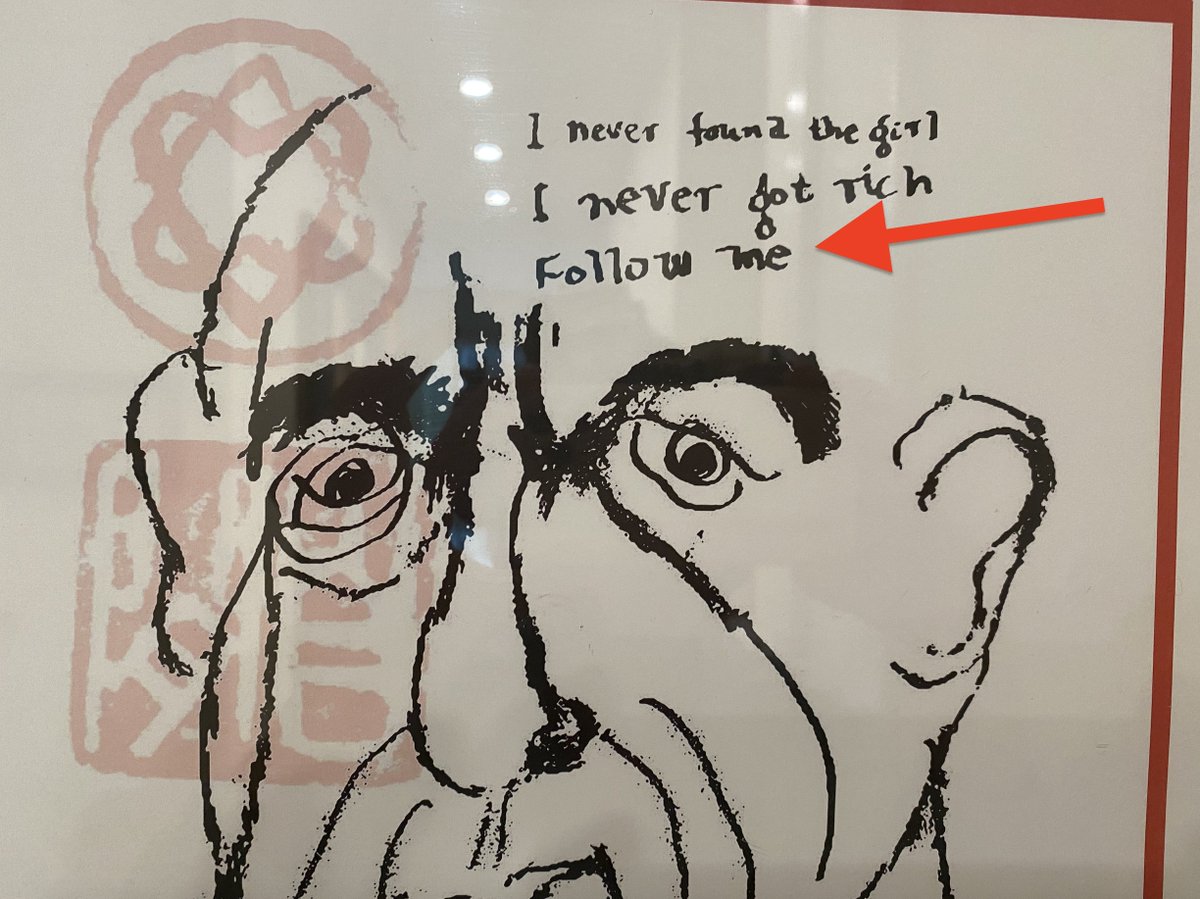 I never found the girl
I never got rich
Follow me